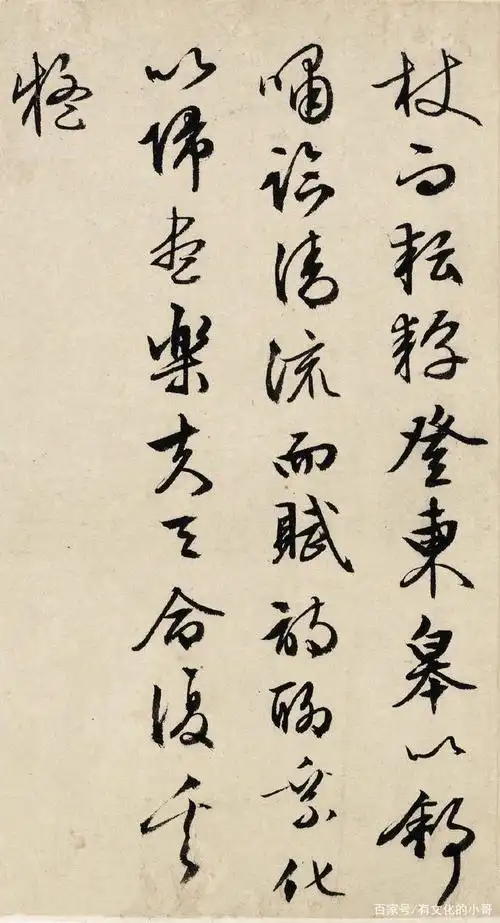 杖而耘耔登東皋以舒
嘯臨清流而賦詩聊乘化
以歸盡樂夫天命復奚
疑
百家号/有文化的小哥